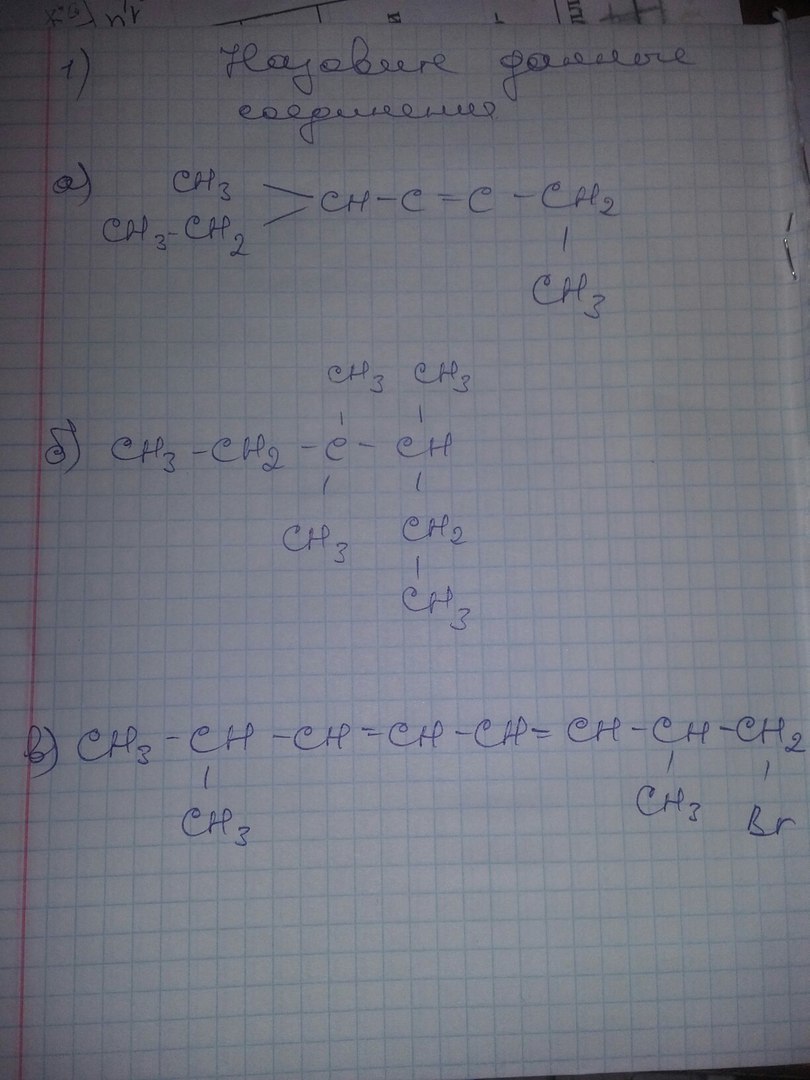 1) Назовите данные
соединения
а) CH3
CH3-CH2 > CH-C=C-CH2
CH3
CH3 CH3
б) CH3-CH2-C-CH
CH3 CH2
CH3
в) CH3-CH-CH=CH-CH=CH-CH-CH2
CH3 CH3 Br